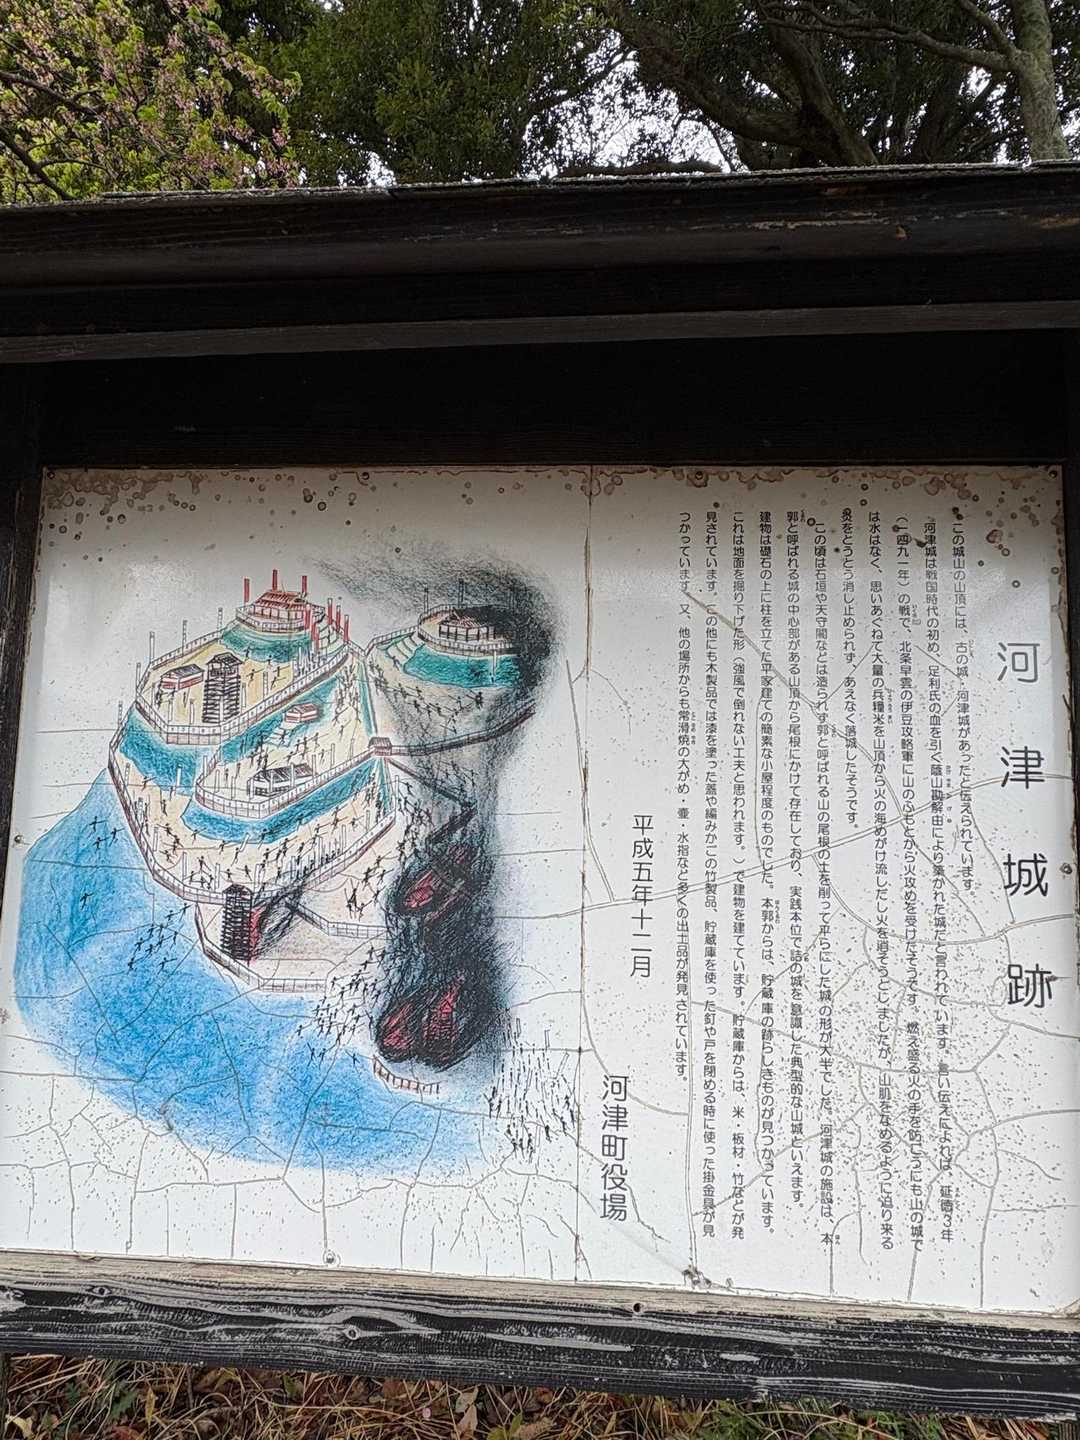 河津城跡
この城山の山頂には、古の城、河津城があったと伝えられています。
河津城は戦国時代の初め、足利氏の血を引く蔭山勘解由により築かれた城だと言われています。言い伝えによれば、延徳3年
(一四九一年)の戦で、北条早雲の伊豆攻略軍に山のふもとから火攻めを受けたそうです。燃え盛る火の手を防ごうにも山の城で
は水はなく、思いあぐねて大量の兵糧米を山頂から火の海めがけ流しだし火を消そうとしましたが、山肌をなめるように迫り来る
炎をとうとう消し止められず、あえなく落城したそうです。
この頃は石垣や天守閣などは造られず郭と呼ばれる山の尾根の土を削って平らにした城の形が大半でした。河津城の施設は、本
郭と呼ばれる城の中心部がある山頂から尾根にかけて存在しており、実践本位で詰の城を意識した典型的な山城といえます。
建物は礎石の上に柱を立てた平家建ての簡素な小屋程度のものでした。本郭からは、貯蔵庫の跡らしきものが見つかっています。
これは地面を掘り下げた形(強風で倒れない工夫と思われます。)で建物を建てています。貯蔵庫からは、米・板材・竹などが発
見されています。この他にも木製品では漆を塗った蓋や編みかごの竹製品、貯蔵庫を使った釘や戸を閉める時に使った掛金具が見
つかっています。又、他の場所からも常滑焼の大がめ・壷・水指など多くの出土品が発見されています。
平成五年十二月
河津町役場